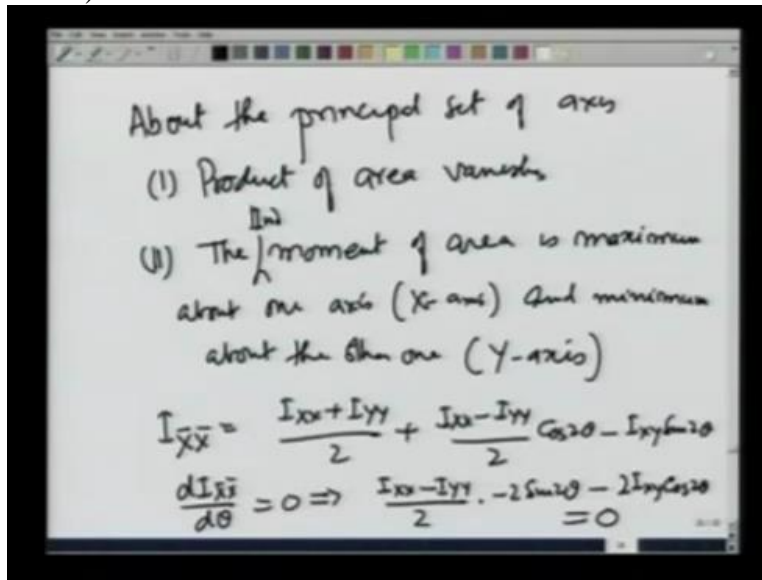 About the principal set of axes
(I) Product of area vanishes
IInd
(II) The moment of area is maximum
about one axis (X-axis) and minimum
about the other one (Y-axis)
I_X̄X̄ = (Ixx + Iyy)/2 + (Ixx - Iyy)/2 Cos2θ - Ixy Sin2θ
dI_X̄X̄/dθ = 0 ⇒ (Ixx - Iyy)/2 . -2 Sin2θ - 2Ixy Cos2θ
= 0